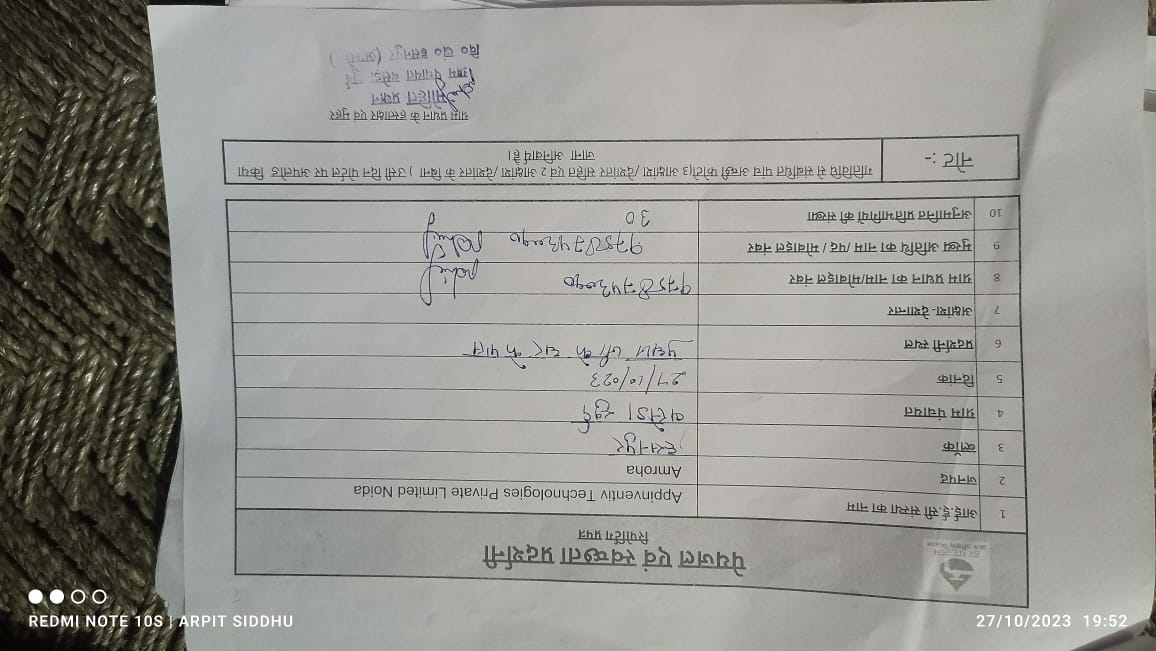 पेयजल एवं स्वच्छता प्रदर्शनी
रिपोर्टिंग प्रपत्र
1 आई.ई.सी संस्था का नाम Appinventiv Technologies Private Limited Noida
2 जनपद Amroha
3 ब्लॉक हसनपुर
4 ग्राम पंचायत खुर्द
5 दिनांक 27/10/023
6 प्रदर्शनी स्थल प्रधान जी के घर के पास
7 अक्षांश- देशान्तर
8 ग्राम प्रधान का नाम/मोबाइल नंबर
9 मुख्य अतिथि का नाम /पद / मोबाइल नंबर
10 अनुमानित प्रतिभागियों की संख्या 30
नोट :- गतिविधि से संबंधित पांच अच्छी फोटो(3 अक्षांश /देशांतर सहित एवं 2 अक्षांश /देशांतर के बिना ) उसी दिन पोर्टल पर अपलोड किया
जाना अनिवार्य है।
ग्राम प्रधान के हस्ताक्षर एवं मुहर
ग्राम पंचायत
वि० खं० हसनपुर
REDMI NOTE 10S | ARPIT SIDDHU
27/10/2023 19:52